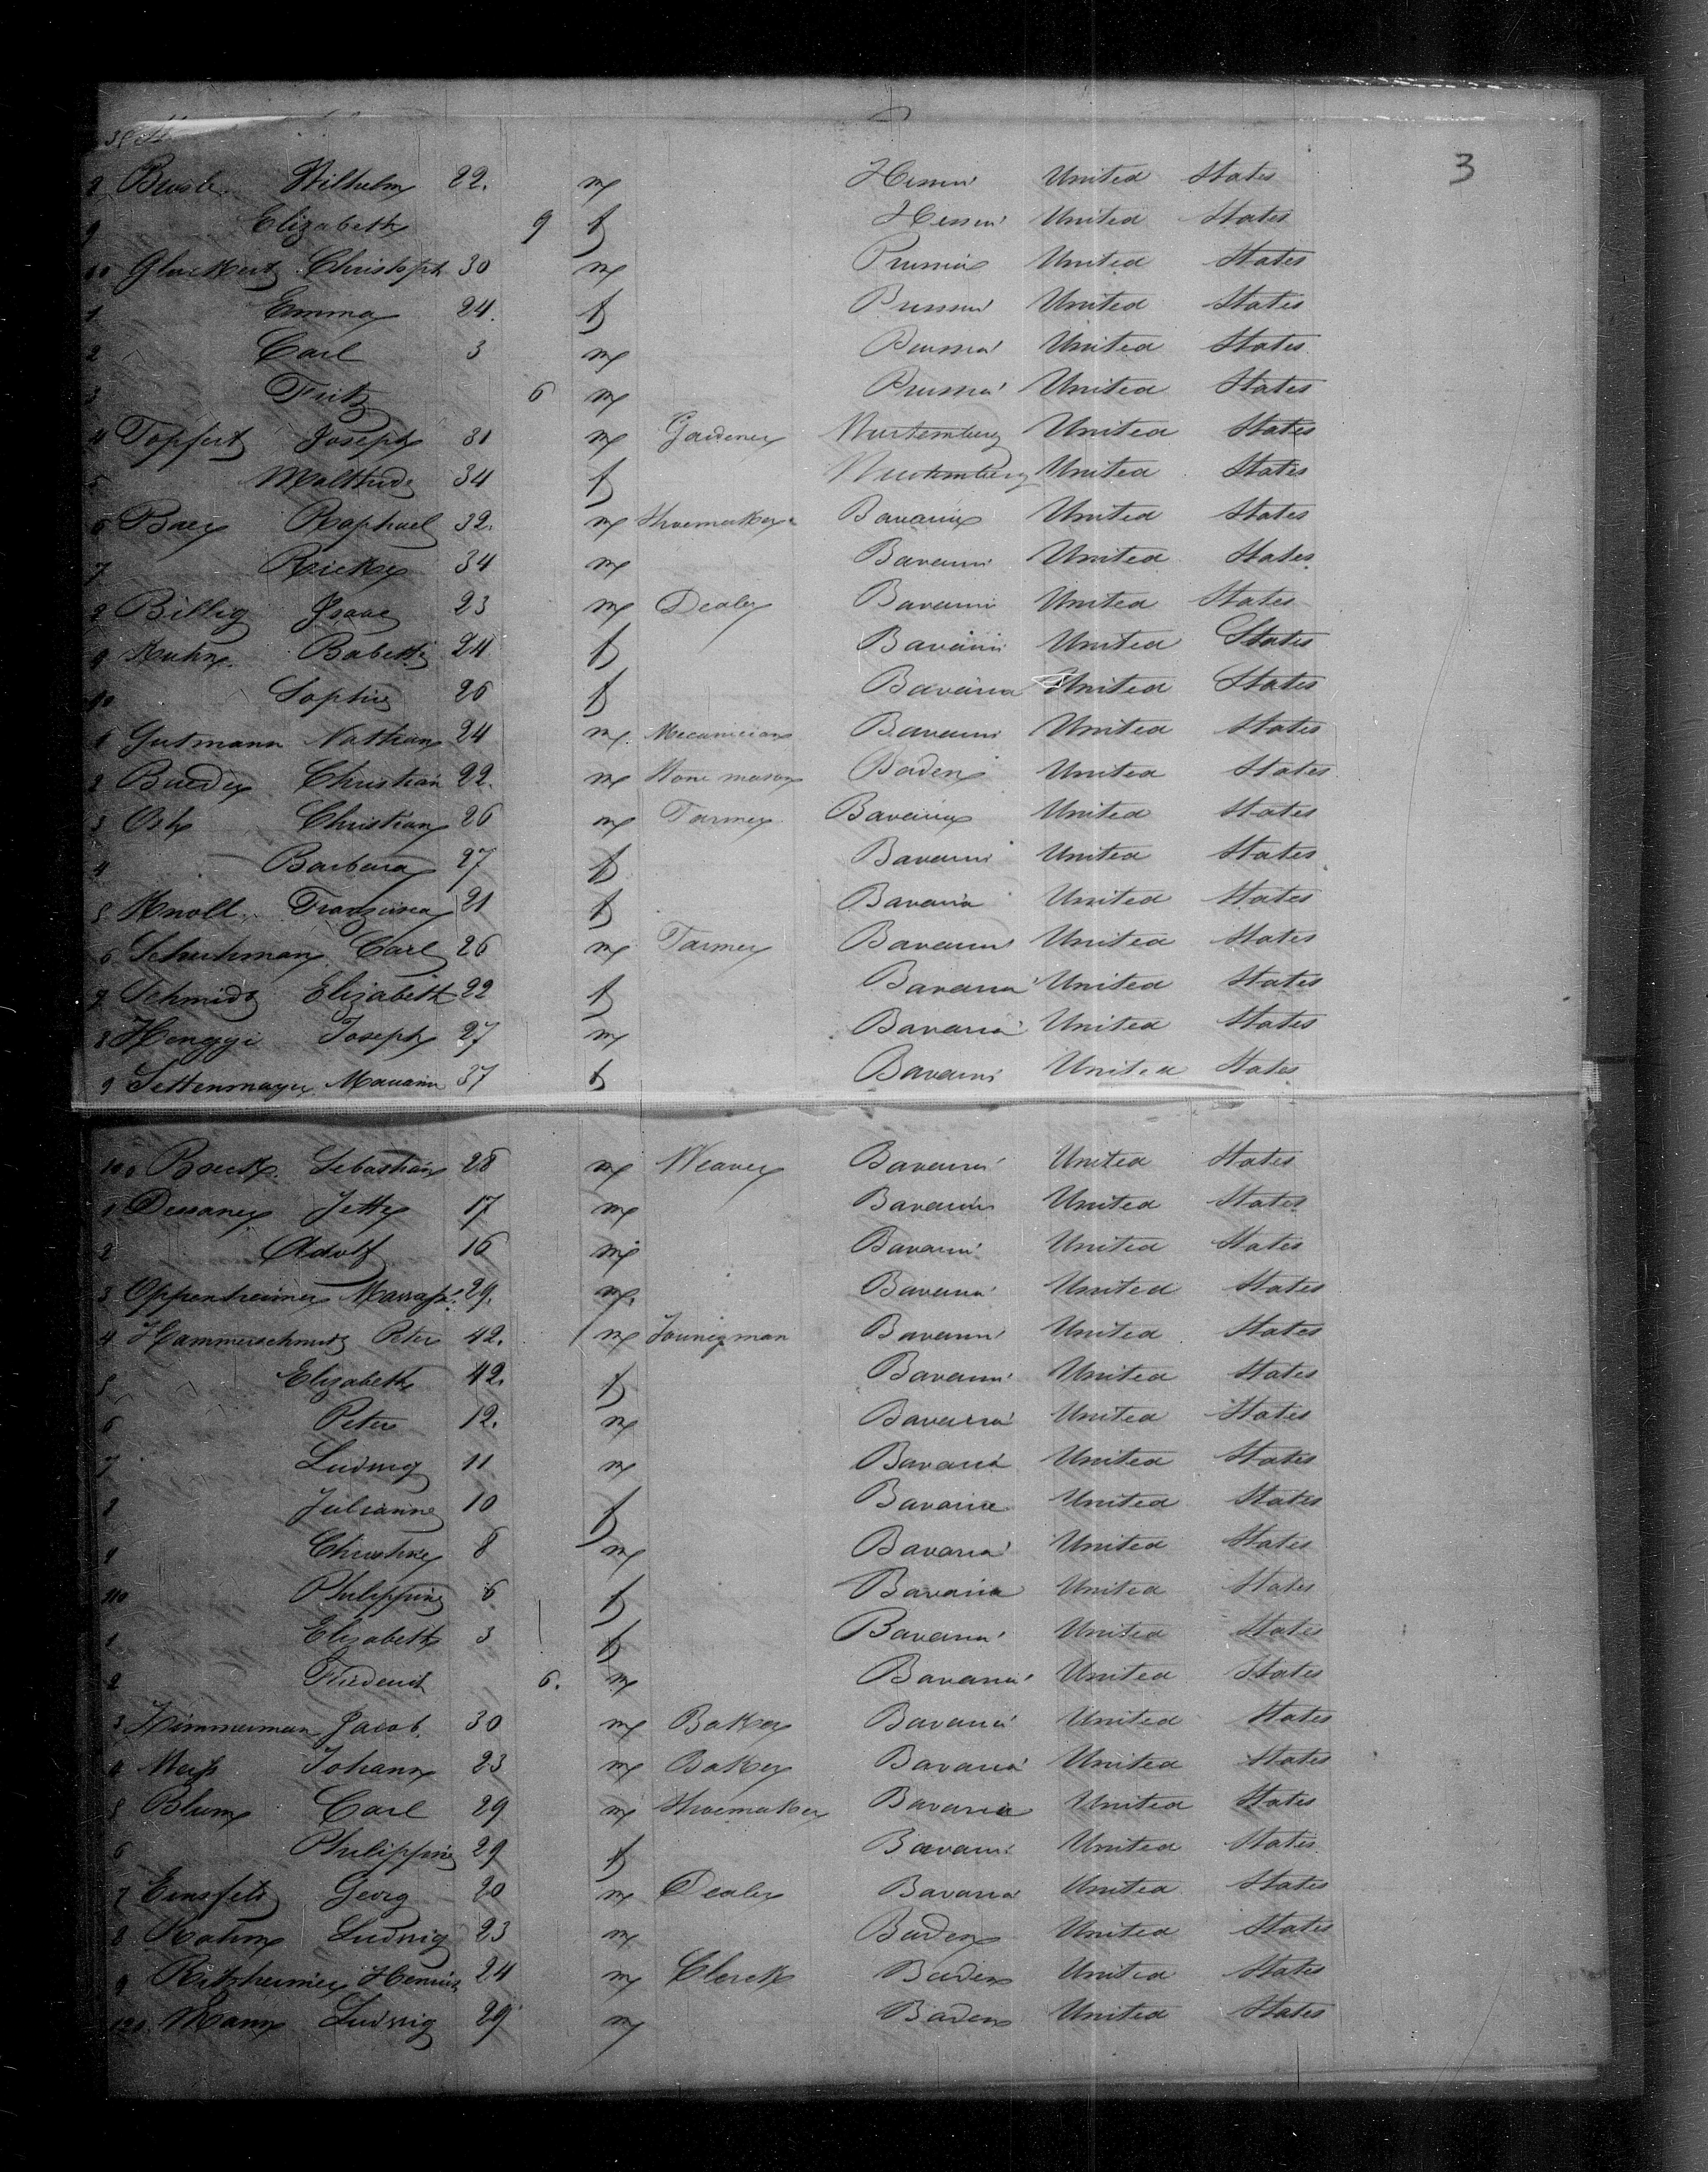 3
8 Wilhelm 22. m United States
9 Elizabeth 9 f United States
Christoph 30 m Prussia United States
1 Emma 24. f United States
2 Carl 3 m United States
3 Fritz 6 m United States
4 Topfert Joseph 31 m Gardener Wurtemberg United States
5 34 f Wurtemberg United States
6 Baer Raphael 32. m Shoemaker Bavaria United States
7 Ricke 34 m Bavaria United States
8 Billig Isaac 23 m Dealer Bavaria United States
9 Kuhn Babette 24 f Bavaria United States
90 Sophie 26 f Bavaria United States
1 Gutmann Nathan 24 m. Mecanician Bavaria United States
2 Christian 22. m Stone mason Baden United States
3 Christian 26 m Farmer Bavaria United States
4 Barbara 27 f Bavaria United States
5 Knoll 21 f Bavaria United States
6 Carl 26 m Farmer Bavaria United States
7 Schmidt Elizabeth 22 f Bavaria United States
8 Henggi Joseph 27 m Bavaria United States
9 Settenmayer 37 f Bavaria United States
100 Sebastian 28 m Weaver Bavaria United States
1 Dessauer Jette 17 m Bavaria United States
2 Adolf 16 m Bavaria United States
3 Oppenheimer 29. m. Bavaria United States
4 Hammerschmidt Peter 42. m Bavaria United States
5 Elizabeth 42. f Bavaria United States
6 Peter 12. m Bavaria United States
7 Ludwig 11 m Bavaria United States
8 Julianne 10 f Bavaria United States
9 Christine 8 m Bavaria United States
110 Philippine 6 f Bavaria United States
1 Elizabeth 3 f Bavaria United States
2 Friederich 6. m Bavaria United States
3 Zimmerman Jacob 30 m Baker Bavaria United States
4 Johann 23 m Baker Bavaria United States
5 Blum Carl 29 m Shoemaker Bavaria United States
6 Philippine 29 f Bavaria United States
7 Einsfeld Georg 20 m Dealer Bavaria United States
8 Ludwig 23 m Baden United States
9 24 m Clerck Baden United States
120. Mann Ludwig 29 m Baden United States